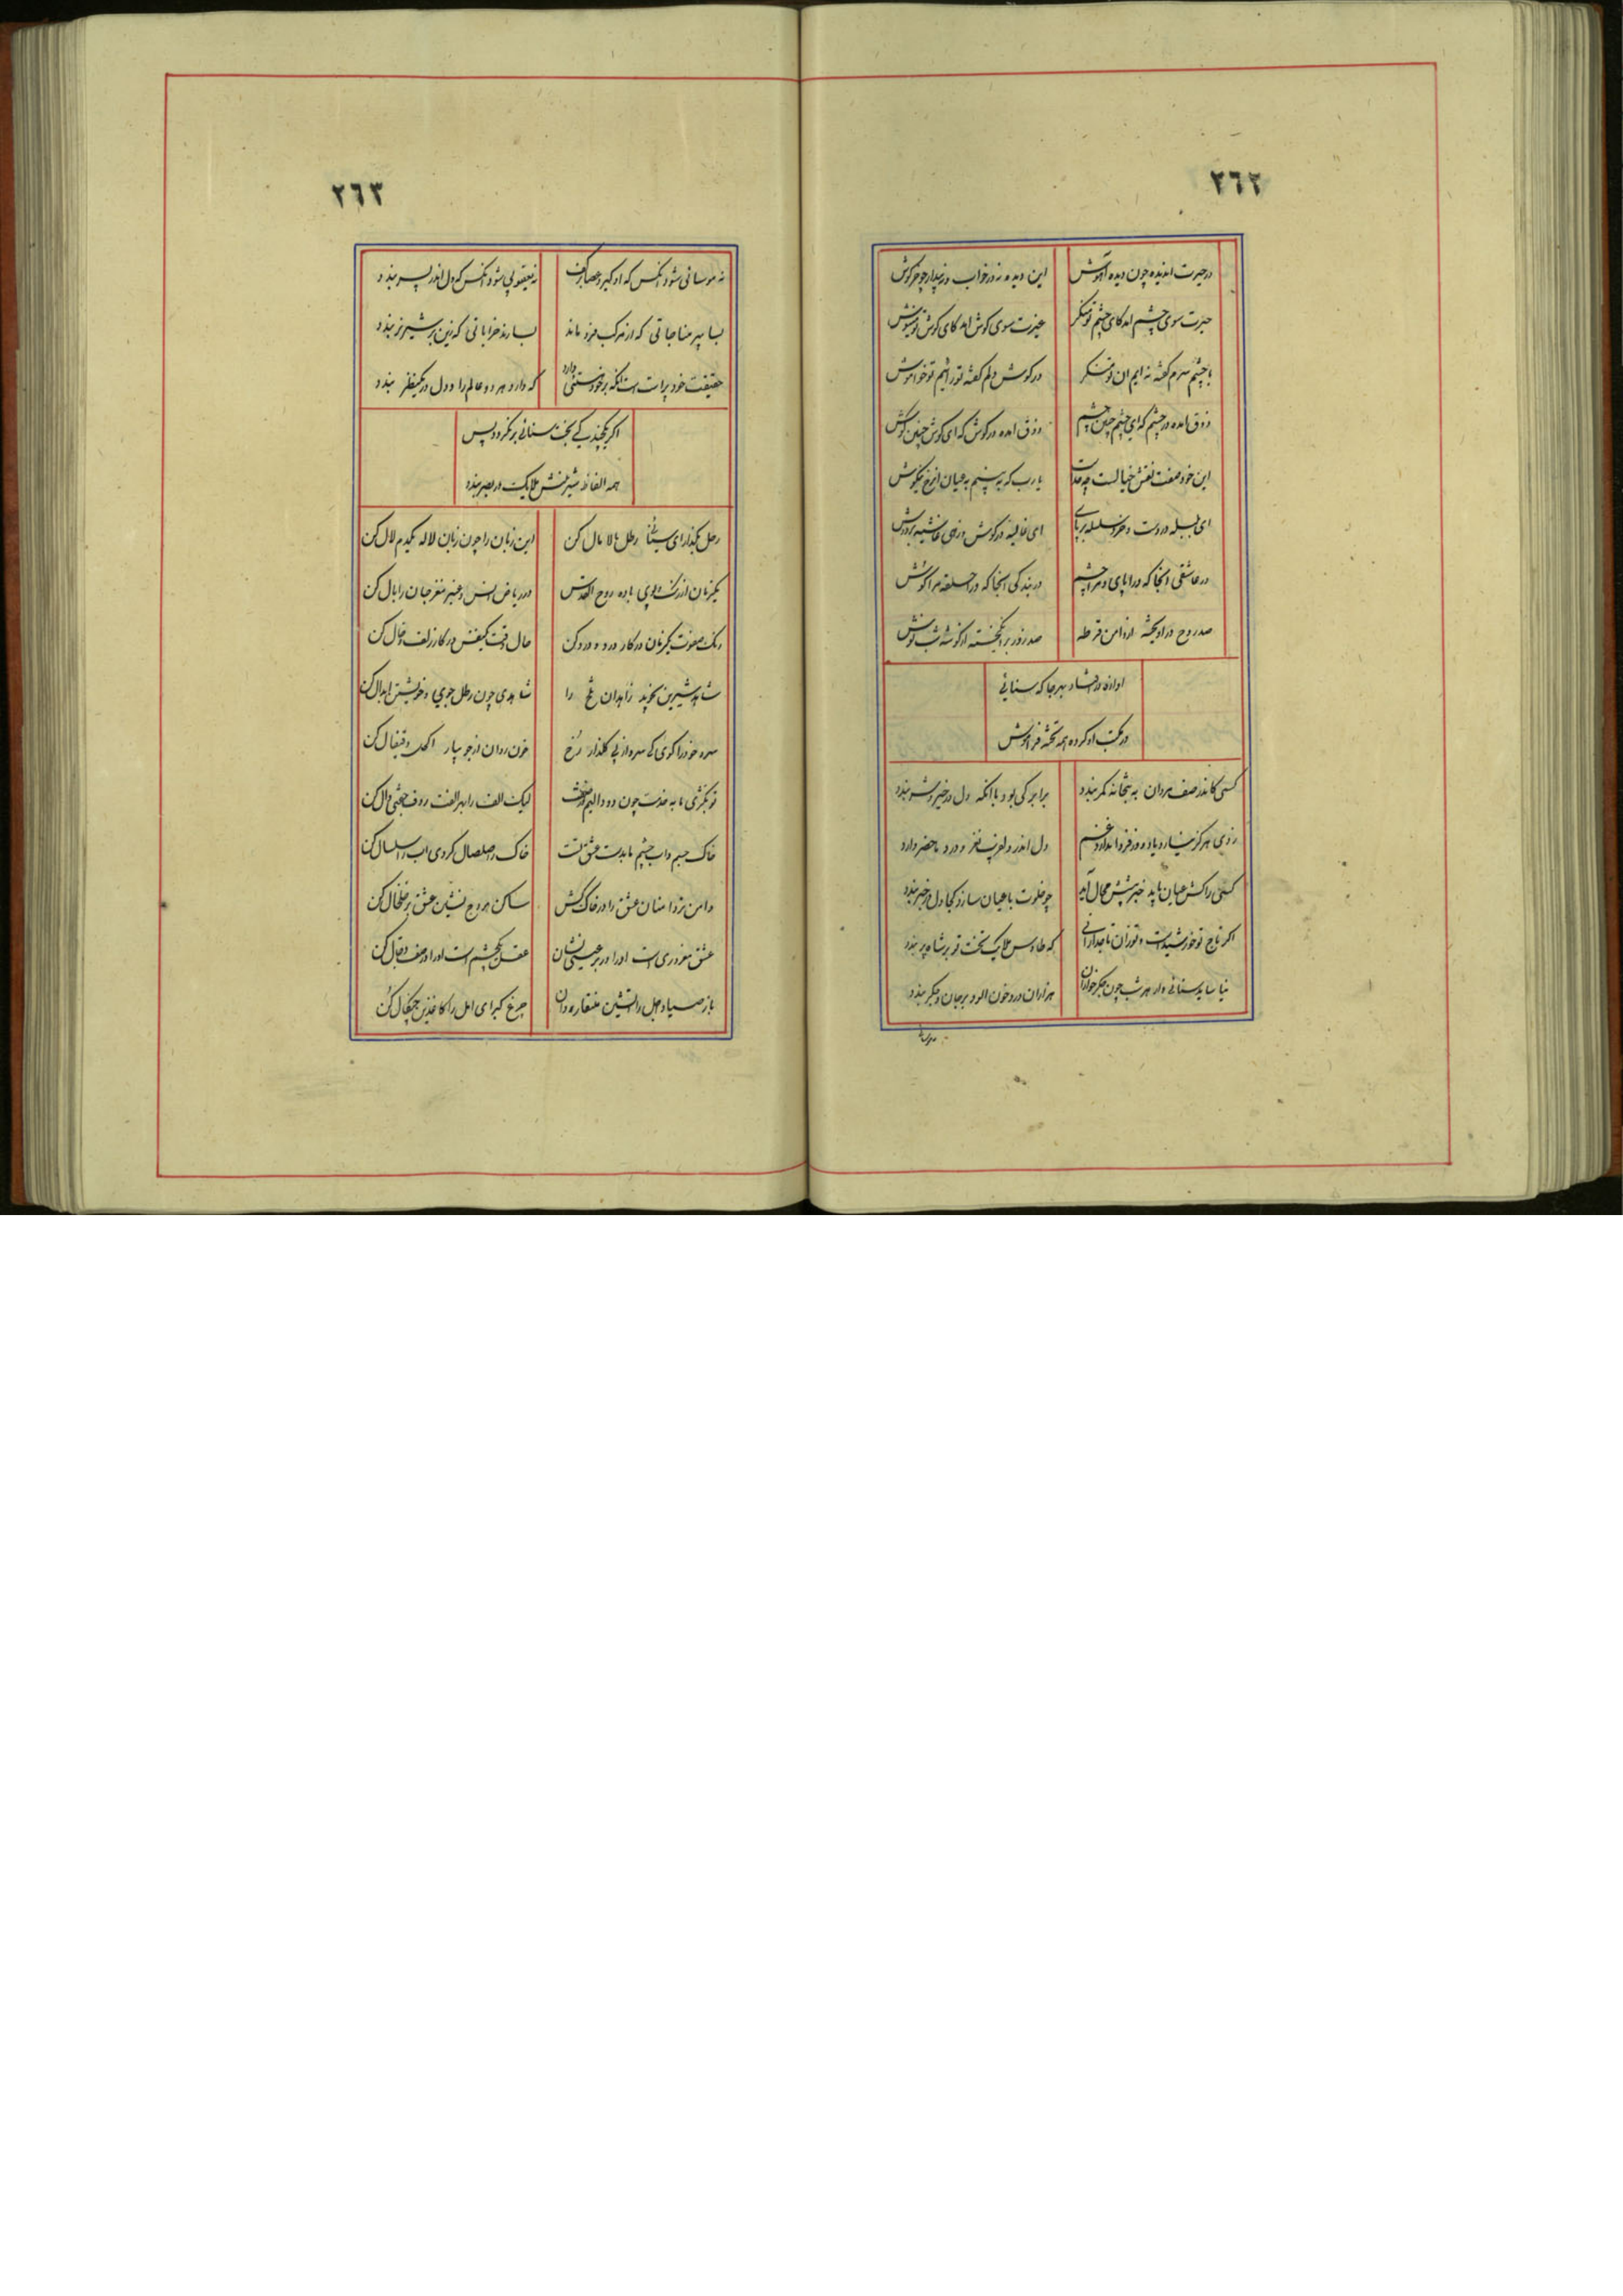 ٢٦٢
در حیرت اندیده چون دیده آهوش این دیده نه در خواب و نه بیدار چو خرکوش
حیرت سوی چشم امد کای چشم تو منکر غیرت سوی کوش امد کای کوش تو منیوش
با چشم سرم کفته نه ایم ان تو منکر در کوش دلم کفته تو رائیم تو مخراموش
ذوق امده در چشم که ای چشم چنین چشم ذوق امده در کوش که ای کوش چنین کوش
این خود صفت نقش خیالست چه یارب که به بینیم به عیان انرخ نیکوش
ای سلسله در دست و خرد سلسله بر پای ای غالیه در کوش و رخی غاشیه بر دوش
در عاشقی انجا که در اپای و مرا چشم در بندکی انجا که در احلقه مرا کوش
صد روح در اویخته از دامن قرطه صد روز بر انکیخته از کوشه شب پوش
اوازه در افتاد بهر جا که سنائی
در مکتب او کرده همه تخته فراموش
کسی کاندر صف مردان به بتخانه کمر بندد برابر کی بود با انکه دل در خیر و شر بندد
ز دی هرکز نیارد یاد و از فردا ندارد غم دل اندر دلفریب نغز و در د ماحضر دارد
کسی را کش عیان باید خبر پیشش محال آید چو خلوت با عیان سازد کجا دل در خبر بندد
اکر تاج تو خورشیدست و تو زان تاجدارانی که طاوس ملایک تخت تو بر شاه پر بندد
نیاساید سنائی وار هر شب چون جکر خواران هزاران درد خون الود بر جان و جکر بندد
٢٦٣
نه موسائی شود انکس که او کیرد عصا بر کف نه یعقوبی شود انکس که دل اندر پسر بندد
بسا پیر مناجاتی که از مرکب فرو ماند بسا رند خراباتی که زین بر شیر نر بندد
حقیقت خود پرست است انکه بر خود منتی دارد که دارد هر دو عالم را و دل در یکنظر بندد
اکر یکچند یکی بخت سنائی بر نکردد پس
همه الفاظ شیرینش ملایک در بصر بندد
رحل بکذار ای سنائی رطل مالا مال کن این زبان را چون زبان لاله یکدم لال کن
یکزمان از رنک و بوی باده روح القدس در ریاض انس و عنبر مغز جان را بال کن
رنک صفوت یکزمان در کار درد و درد کن حال وقت یکنفس در کار زلف و خال کن
شاهد شیرین نجوید زاهدان تلخ را شاهدی چون رطل جوی و خویشتن ابدال کن
سرو خود را کوی کی سرو از پی کلذار رخ خون روان از جویبار اکحل و قیفال کن
تو بکژی ما به خدمت چون دو دالیم از صفت لیک الف را بهر الفت ردف جفتی دال کن
خاک جسم و اب چشم ما بدست عشق تست خاک را صلصال کردی اب را سلسال کن
دامن تر دامنان عشق را در خاک کش ساکن هودج نشین عشق بر خلخال کن
عشق مغروری است اورا در بر عیسی نشان عقل یکچشم است اورا در صف دجال کن
باز صیاد اجل را اتشین منقار دان چرغ کبرای امل را کاغذین چنکال کن